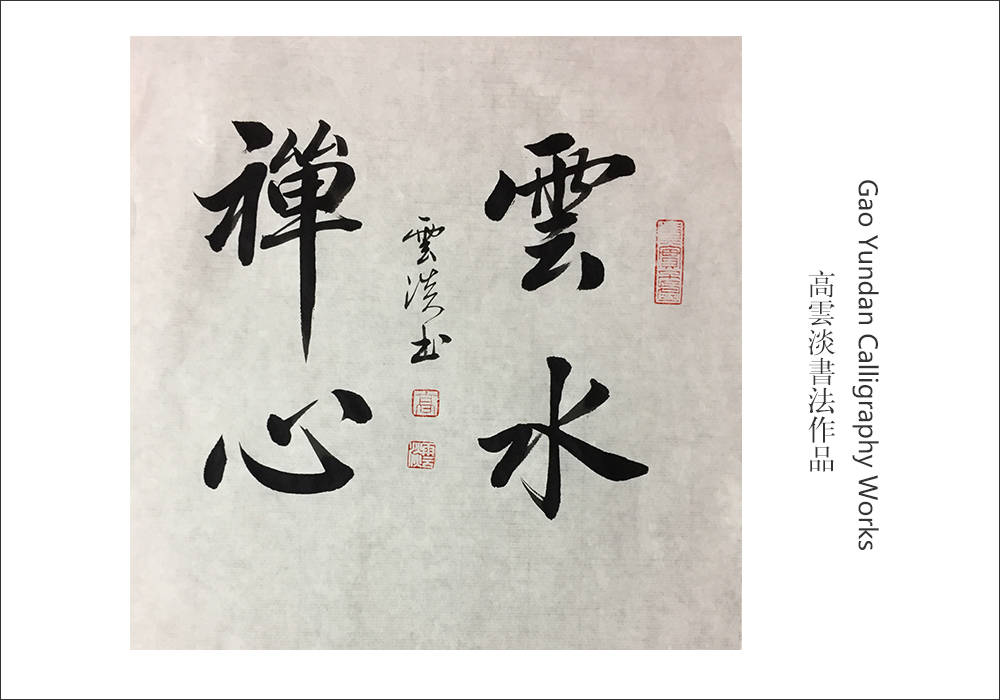 雲水
禪心
雲淡书
Gao Yundan Calligraphy Works
高雲淡書法作品